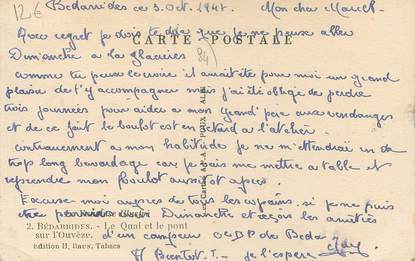 12€
Bédarrides ce 3 Oct. 1941. Mon cher Marcel.
Avec regret je dois te dire que je ne peux aller
CARTE POSTALE
Dimanche à la glacières
84
comme tu peux le croire il aurait été pour moi un grand
plaisir de t'y accompagner mais j'ai été obligé de perdre
trois journées pour aider a mon Grand' père aux vendanges
et de ce fait le boulot est en retard a l'atelier.
contrairement a mon habitude je ne m'étendrai un
trop long bavardage car je vais me mettre a table et
reprendre mon boulot aussitôt après.
Excuse moi aupres de tous les copains si je ne puis
être Dimanche et reçois les amitiés
2. BÉDARRIDES. - Le Quai et le pont
sur l'Ouvèze.
d'un campeur de Beda
Edition H. Tabacs
A Bientot. T. je l'espère